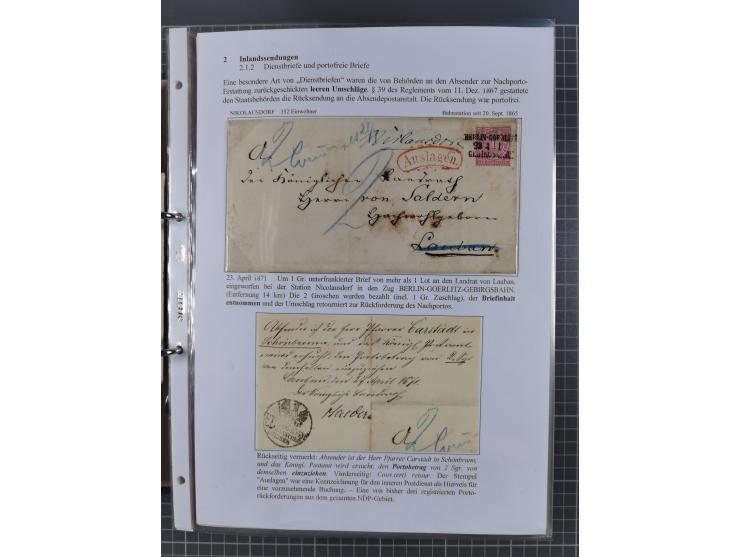 2 Inlandssendungen
2.1.2 Dienstbriefe und portofreie Briefe
Eine besondere Art von „Dienstbriefen" waren die von Behörden an den Absender zur Nachporto-
Erstattung zurückgeschickten leeren Umschläge. § 39 des Reglements vom 11. Dez. 1867 gestattete
den Staatsbehörden die Rücksendung an die Absendepostanstalt. Die Rücksendung war portofrei.
NIKOLAUSDORF 352 Einwohner Bahnstation seit 20. Sept. 1865
BERLIN-GOERLITZ
Auslagen.
Der Königlichen Landrath
Herrn von Saldern
Hochwohlgeboren
Lauban
23. April 1871 Um 1 Gr. unterfrankierter Brief von mehr als 1 Lot an den Landrat von Lauban,
eingeworfen bei der Station Nicolausdorf in den Zug BERLIN-GOERLITZ-GEBIRGSBAHN.
(Entfernung 14 km) Die 2 Groschen wurden bezahlt (incl. 1 Gr. Zuschlag), der Briefinhalt
entnommen und der Umschlag retourniert zur Rückforderung des Nachportos.
Absender ist der Herr Pfarrer Carstädt in
Schönbrunn, und das Königl. Postamt
wird ersucht, den Portobetrag von 2 Sgr
von demselben einzuziehen
Lauban, den 24 April 1871
Der Königliche Landrath
Rückseitig vermerkt: Absender ist der Herr Pfarrer Carstädt in Schönbrunn,
und das Königl. Postamt wird ersucht, den Portobetrag von 2 Sgr. von
demselben einzuziehen. Vorderseitig: Couv(ert) retour. Der Stempel
"Auslagen" war eine Kennzeichnung für den inneren Postdienst als Hinweis für
eine vorzunehmende Buchung. – Eine von bisher drei registrierten Porto-
rückforderungen aus dem gesamten NDP-Gebiet.